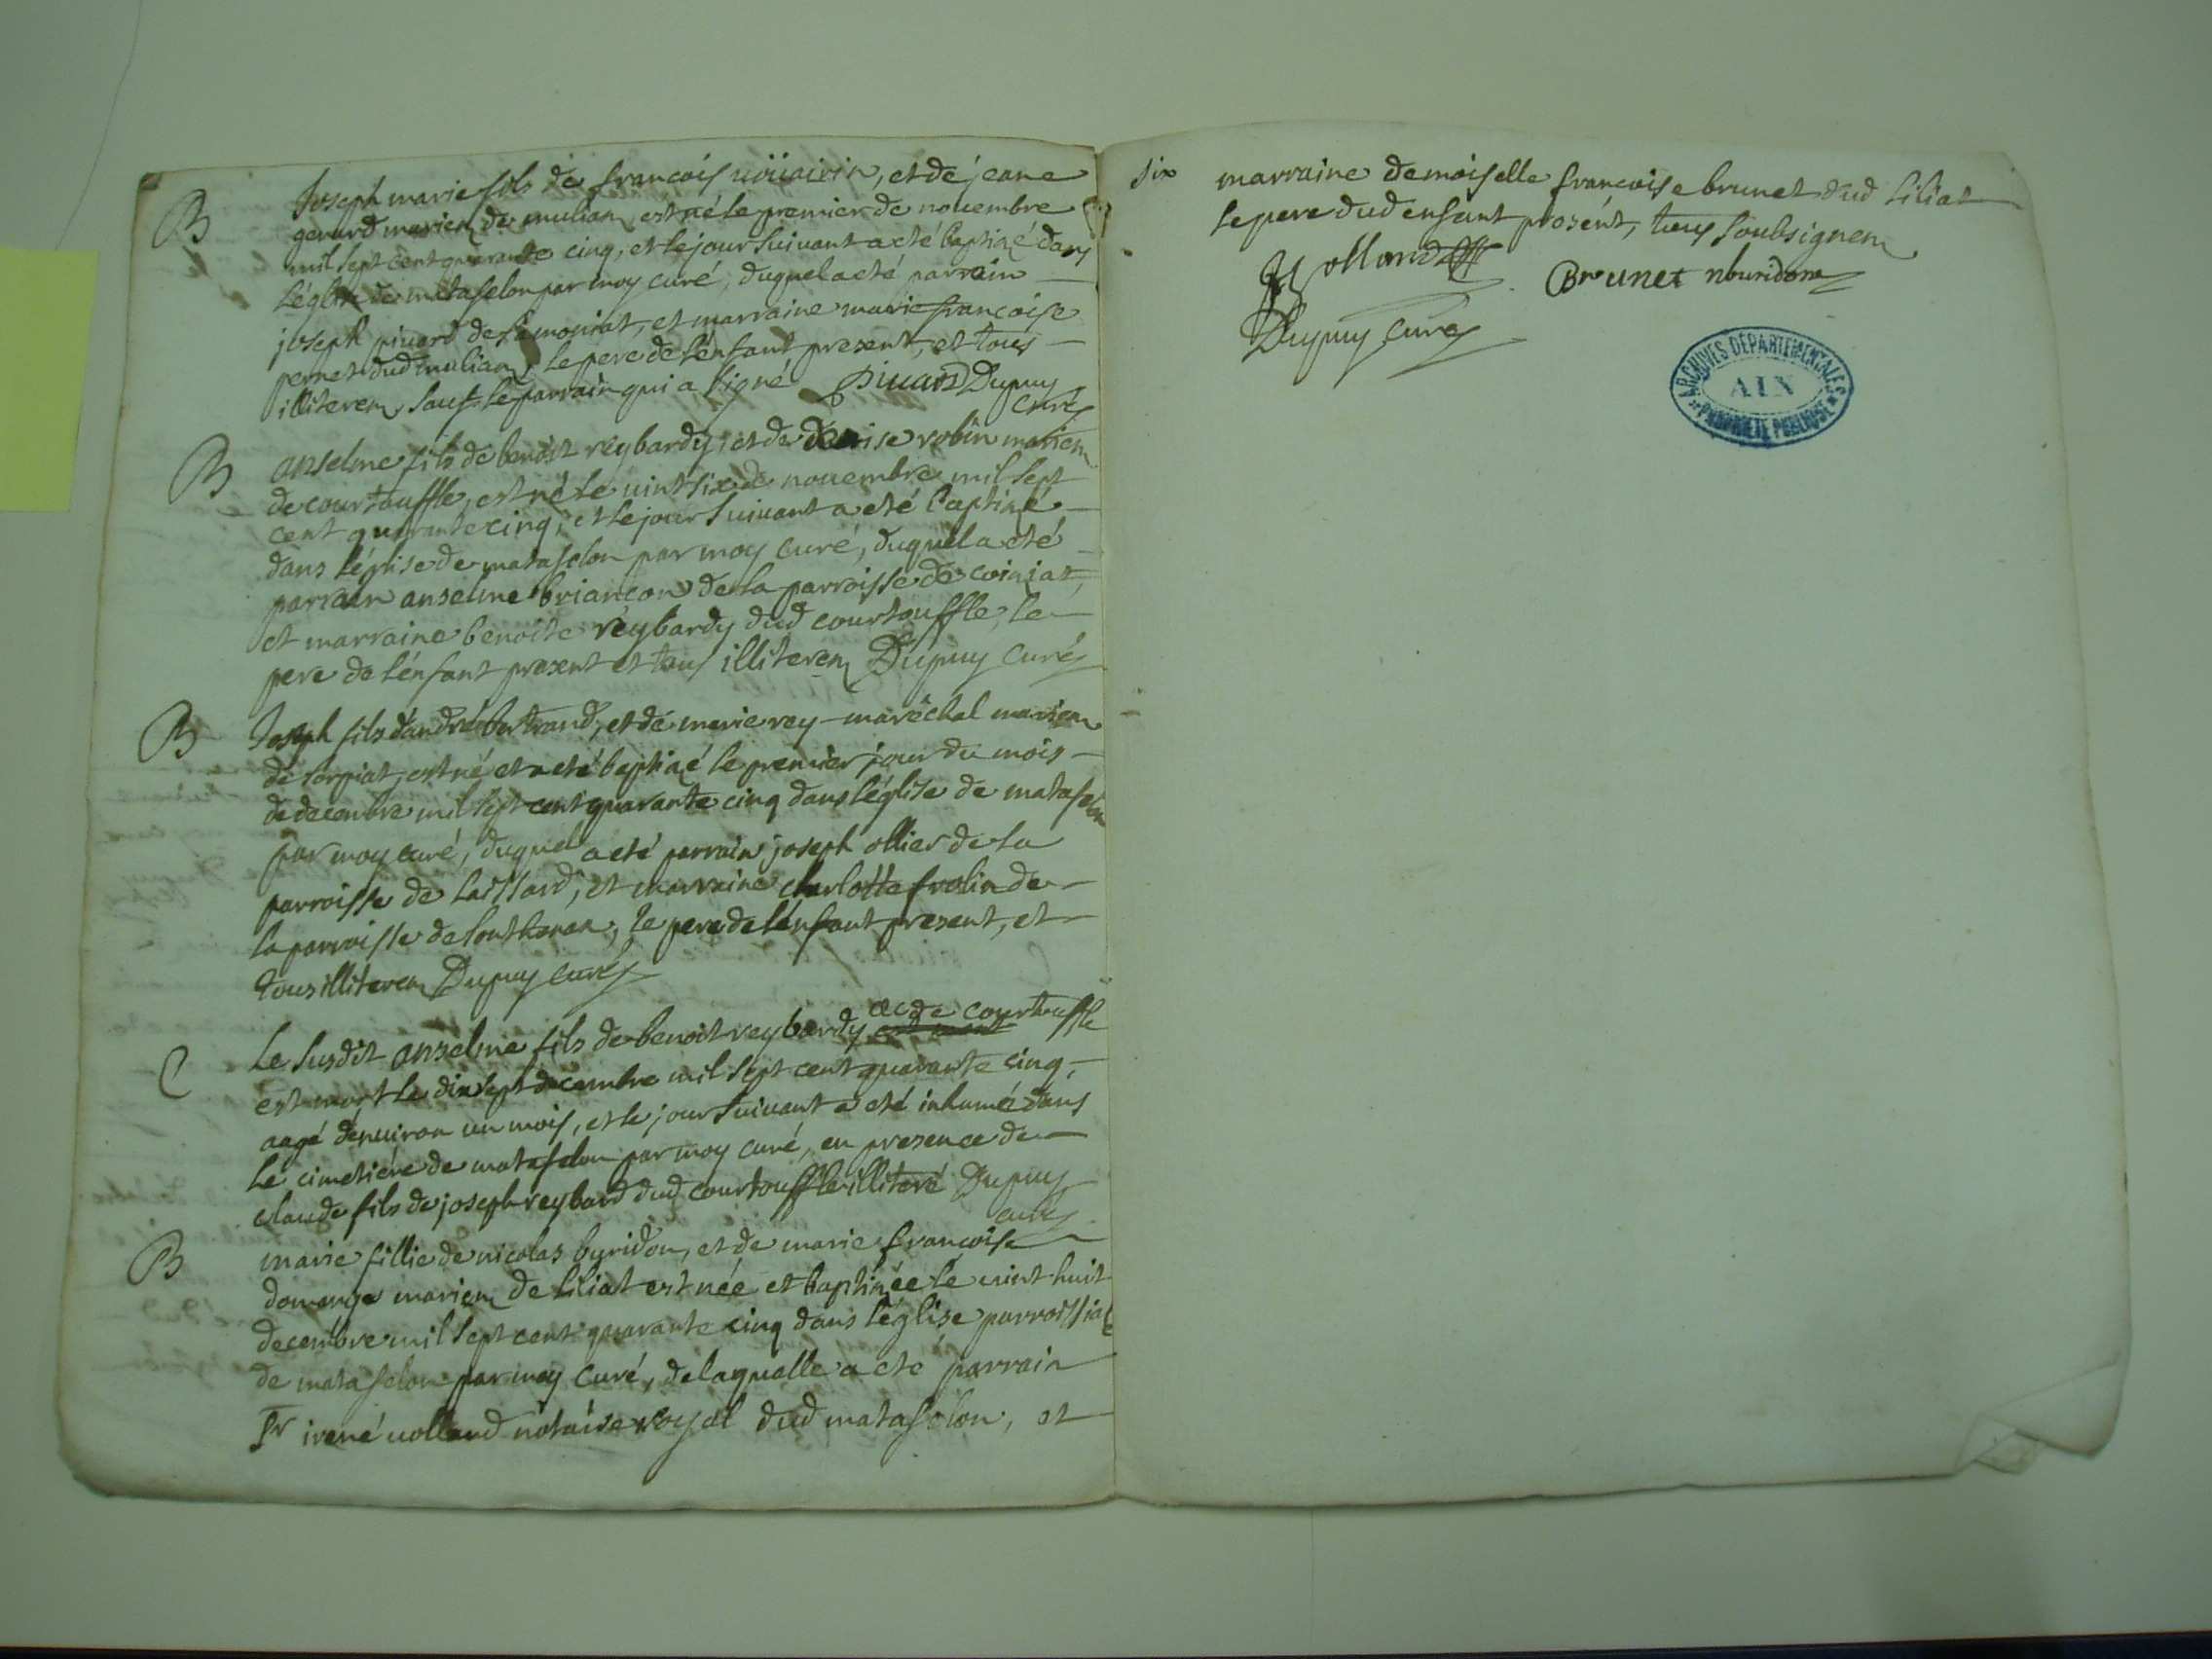 B Joseph marie fils de françois uöüairin, et de jeane
gerard mariem de mulian, est né le premier de nouembre
mil sept cent quarante cinq, et le jour suiuant a eté baptizé dans
l'église de matafelon par moy curé, duquel a eté parrain
joseph piuard de samoniat, et marraine marie françoise
pernet dud mulian, le pere de l'enfant present, et tous
illiterem sauf le parrain qui a signé Piuard Dupuy
curé
B anselme fils de benoit reybardy, et de denise robin mariem
de courtouffle, est né le uint six de nouembre mil sept
cent quarante cinq, et le jour suiuant a eté baptizé
dans l'église de matafelon par moy curé, duquel a eté
parrain anselme briançon de la parroisse de coiziat,
et marraine benoite reybardy dud courtouffle, le
pere de l'enfant present et tous illiterem Dupuy curé
B Joseph fils d'andré bertrand, et de marie rey-maréchal mariem
de corpiat, est né et a eté baptizé le premier jour du mois
de decembre mil sept cent quarante cinq dans l'église de matafelon
par moy curé, duquel a eté parrain joseph ollier de la
parroisse de laissard, et marraine charlotte frolin de
la parroisse de sonthonax, le pere de l'enfant present, et
tous illiterem Dupuy curé
C Le susdit anselme fils de benoit reybardy de courtouffle
est mort le dix sept decembre mil sept cent quarante cinq,
aagé d'enuiron un mois, et le jour suiuant a eté inhumé dans
le cimetiére de matafelon par moy curé, en presence de
claude fils de joseph reybard dud courtouffle illiteré Dupuy
curé
B marie fillie de nicolas byridon, et de marie françoise
domange mariem de siliat est née et baptizée le uint huit
decembre mil sept cent quarante cinq dans l'église parroissial
de matafelon par moy curé, de laquelle a eté parrain
Sr irené uolland notaire royal dud matafelon, et
six marraine demoiselle françoise brunet dud siliat
le pere dud enfant présent, tous soubsignem
Volland Brunet nburidon
Dupuy curé
ARCHIVES DÉPARTEMENTALES
AIN
PROPRIÉTÉ PUBLIQUE